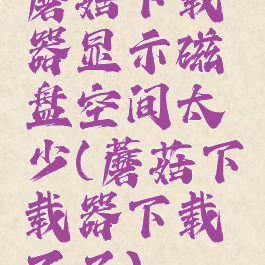 蘑菇下载
器显示磁
盘空间太
少(蘑菇下
载器下载